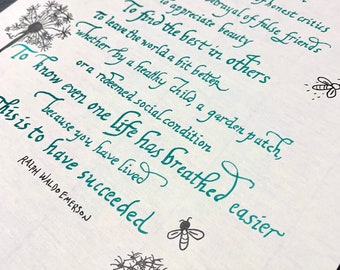 of honest critics
betrayal of false friends
to appreciate beauty
To find the best in others
to leave the world a bit better
whether by a healthy child, a garden patch,
or a redeemed social condition
To know even one life has breathed easier
because you have lived
This is to have succeeded
RALPH WALDO EMERSON